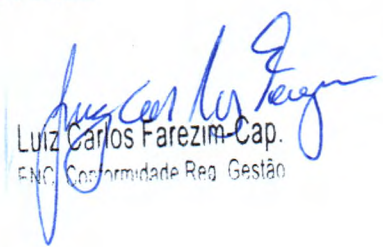 Luiz Carlos Farezim-Cap.
ENC. Conformidade Reg. Gestão